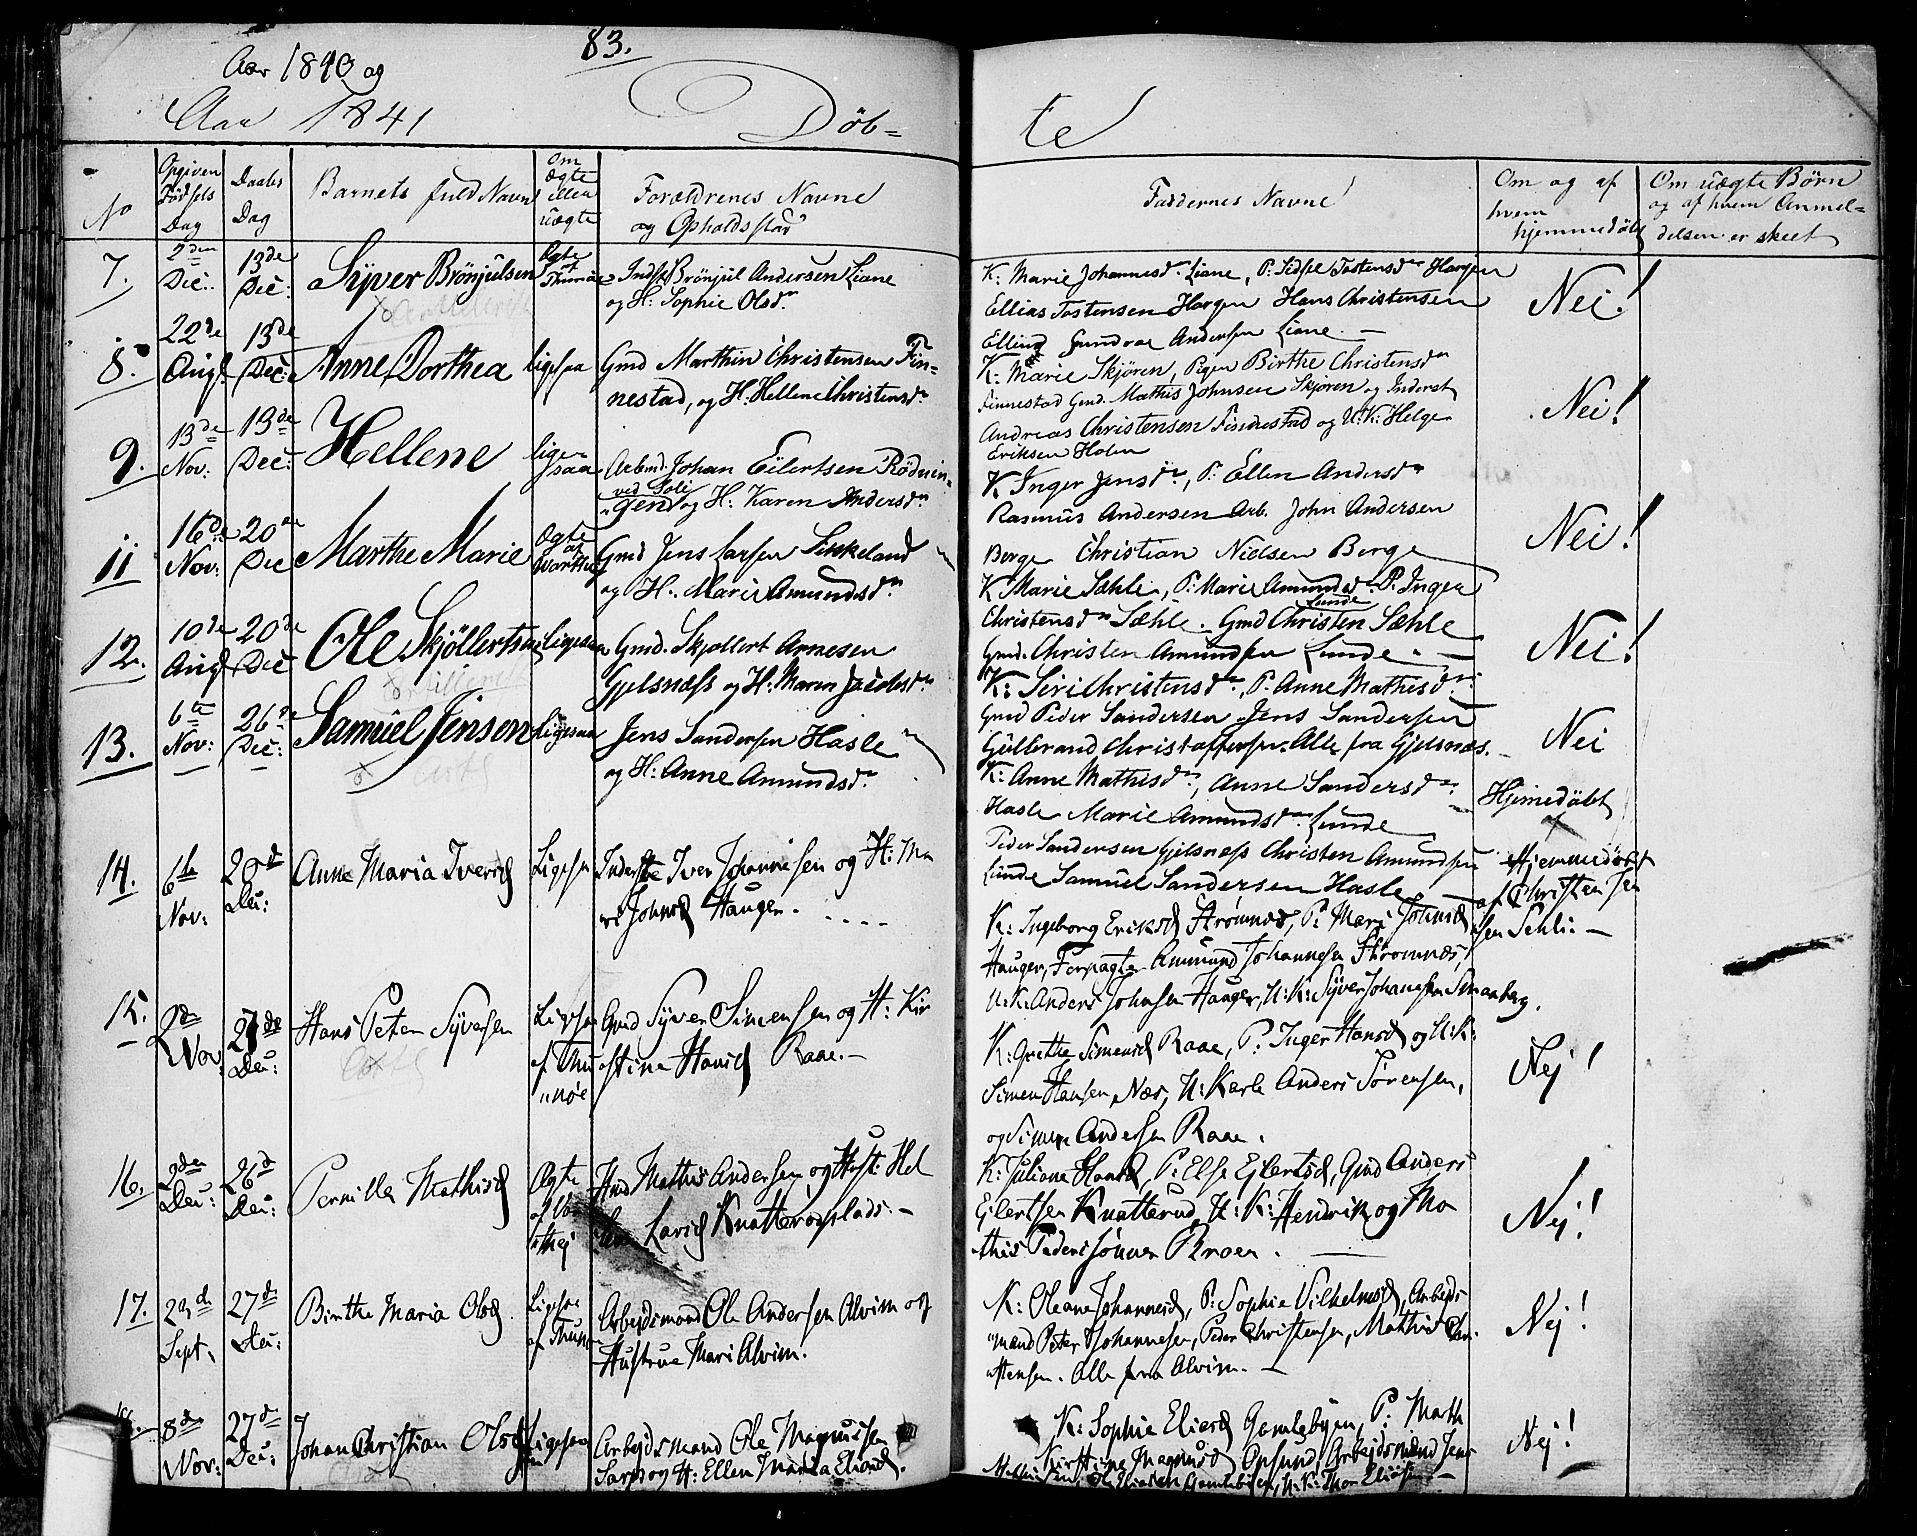 83.
Aar 1840 og
Aar 1841
Døb= te
No
Opgiven Fødsels Dag
Daabs Dag
Barnets fuld Navn
Om Ægte eller uægte
Forældrenes Navne og Opholdsstæd
Faddernes Navne
Om og af hvem hjemmedøbt
Om uægte Børn og af hvem Anmel= delsen er skeet
7.
2den Dec:
13de Dec:
Syver Brönjulsen
Ægte af Thunöe
Inds Brönjul Andersen Liane
og H: Sophie Olsdn
K: Marie Johannesdn Liane, P: Sidse Tostensdn Horgen
Ellias Tostensen Horgen Hans Christensen
Elling Gundroe Andersen Liane. —
Nei!
8.
22de Augt
13de Dec:
Anne Dorthea
ligesaa
Gmd Marthin Christensen Fin=
nestad, og H: Hellene Christensdn
K: Marie Skjören, Pigen Birthe Christensdn
Finnestad Gmd. Mathis Johnsen Skjören og Inderst
Andreas Christensen Finnestad og U:K: Helge
Eriksen Holen
Nei!
9.
13de Nov:
13de Dec:
Hellene
lige= saa
Arbmd. Johan Eilertsen Rödnin=
ved Soli
gen og H: Karen Andersdn
K Inger Jensdn, P: Ellen Andersdn
Rasmus Andersen Arb. John Andersen
Berge Christian Nielsen Berge
Nei!
11
16de Nov:
20de Dec
Marthe Marie
Ægte af Varthej
Gmd Jens Larsen Sikkeland
og H: Mari Amundsdn
K Marie Sæhle, P: Marie Amundsd P: Inger
Christensdn Sæhle. Gmd Christen Sæhle
Lunde
Gmd. Christen Amundsen Lunde. —
Nei!
12.
10de Augt
20de Dec
Ole Skjöllertsen
Ligesaa
Gmd. Skjöllert Arnesen
Gjelsnæss og H: Maren Jacobsdn
K: Siri Christensdn, P. Anne Mathisdn
Gmd Peder Sandersen Jens Sandersen
Gulbrand Christoffersen. Alle fra Gjelsnæs. —
Nei
13.
6te Nov:
26de Dec:
Samuel Jensen
Ligesaa
Jens Sandersen Hasle
og H: Anne Amundsdn
K: Anne Mathisdn, Anne Sandersdn
Hasle Marie Amundsdn Lunde
Peder Sandersen Gjelsnæss Christen Amundsen
Lunde Samuel Sandersen Hasle. —
Hjemedöbt
14.
6te Nov:
20de Dec:
Anne Maria Iversd
Ligesaa
Inderste Iver Johannesen og H: Ma
ri Johnsd Haugen. - - - -
K: Ingeborg Eriksd Strömnes, P: Mari Johnsd
Haugen, Forpagter Ammund Johannesen Strömnæs,
U:K: Anders Johnsen Haugen, U:K: Syver Johannesen Smaaberg.
Hjemmedöbt
af Christen Jen
sen Sehli. —
15.
2de Nov:
27de Dec:
Hans Peter Syversen
Ligesaa af Thu nöe
Gmd Syver Simensen og H: Kir
stine Hansd Raae. —
K: Grethe Simensd Raae, P: Inger Hansd og U:K:
Simen Hansen Næs, U: Karle Anders Sörensen,
og Simen Andersen Raae.
Nej!
16.
2den Dec:
26d Dec:
Pernille Mathisd
Ægte af Var thej
Hmd Mathis Andersen og Hust: Hel
Larsd Knatterøplads. —
K: Juliane Hansd, P: Else Ejlertsd, Gmd Anders
Ejlertsen Knatterud, U:K: Hendrik og Tho
this Peders sönner Broen. —
Nej!
17.
23d Sept.
27de Dec:
Birthe Maria Olsd
Ligesaa af Thunø
Arbejdsmand Ole Andersen Alvim og
Hustrue Mari Alvim.
K: Oleane Johannesd, P: Sophie Vilhelmsd, Arbejds
mænd Peter Johannesen, Peder Christensen, Mathis Chri
stensen. Alle fra Alvim. —
Nej!
18.
8de Nov:
27de Dec:
Johan Christian Olsen
Ligesaa
Arbejdsmand Ole Magnussen
Sarp og H: Ellen Maria Eliasd.
K: Sophie Eliasd Gamlebyen, P: Marth
Kirstine Magnusd Opsund, Arbejdsmænd Jens
Eliasen Gamlebyen, U:K: Thor Eliasen
Nej!